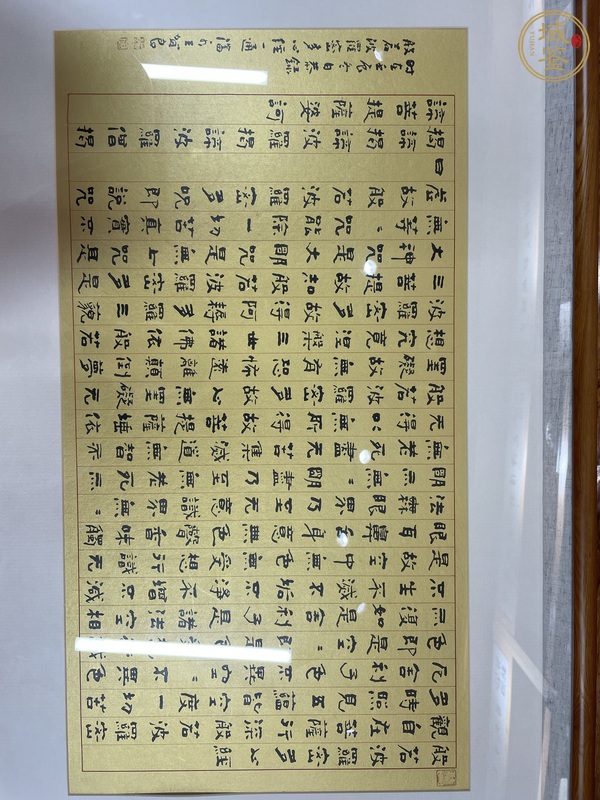 般若波羅蜜多心經
觀自在菩薩行深般若波羅蜜
多時照見五蘊皆空度一切苦
厄舍利子色不異空空不異色
色即是空空即是色受想行識
亦復如是舍利子是諸法空相
不生不滅不垢不淨不增不減
是故空中無色無受想行識无
眼耳鼻舌身意無色聲香味觸
法無眼界乃至无意識界無〻
明亦無〻明盡乃至無老死亦
無老死盡无苦集滅道無智亦
无得以無所得故菩提薩埵依
般若波羅蜜多故心無罣礙无
罣礙故無有恐怖遠離顛倒夢
想究竟涅槃三世諸佛依般若
波羅蜜多故得阿耨多羅三藐
三菩提故知般若波羅蜜多是
大神咒是大明咒是無上咒是
無等〻咒能除一切苦真實不
虛故說般若波羅蜜多咒即說咒
曰
揭諦揭諦波羅揭諦波羅僧揭
諦菩提薩婆訶
時在壬辰冬月恭錄
般若波羅蜜多心經一通